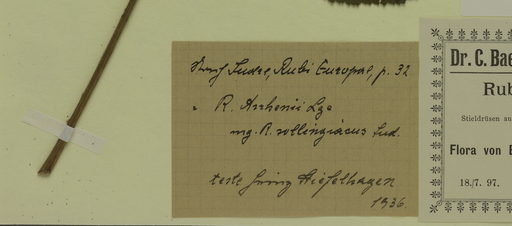 Sudre, Rubi Europae, p. 32
R. Arrhenii Lge
mg. R. vellingiacus Sud.
teste Hieselhagen
1936
Dr. C. Bae
Rub
Stieldrüsen au
Flora von B
18./7. 97.